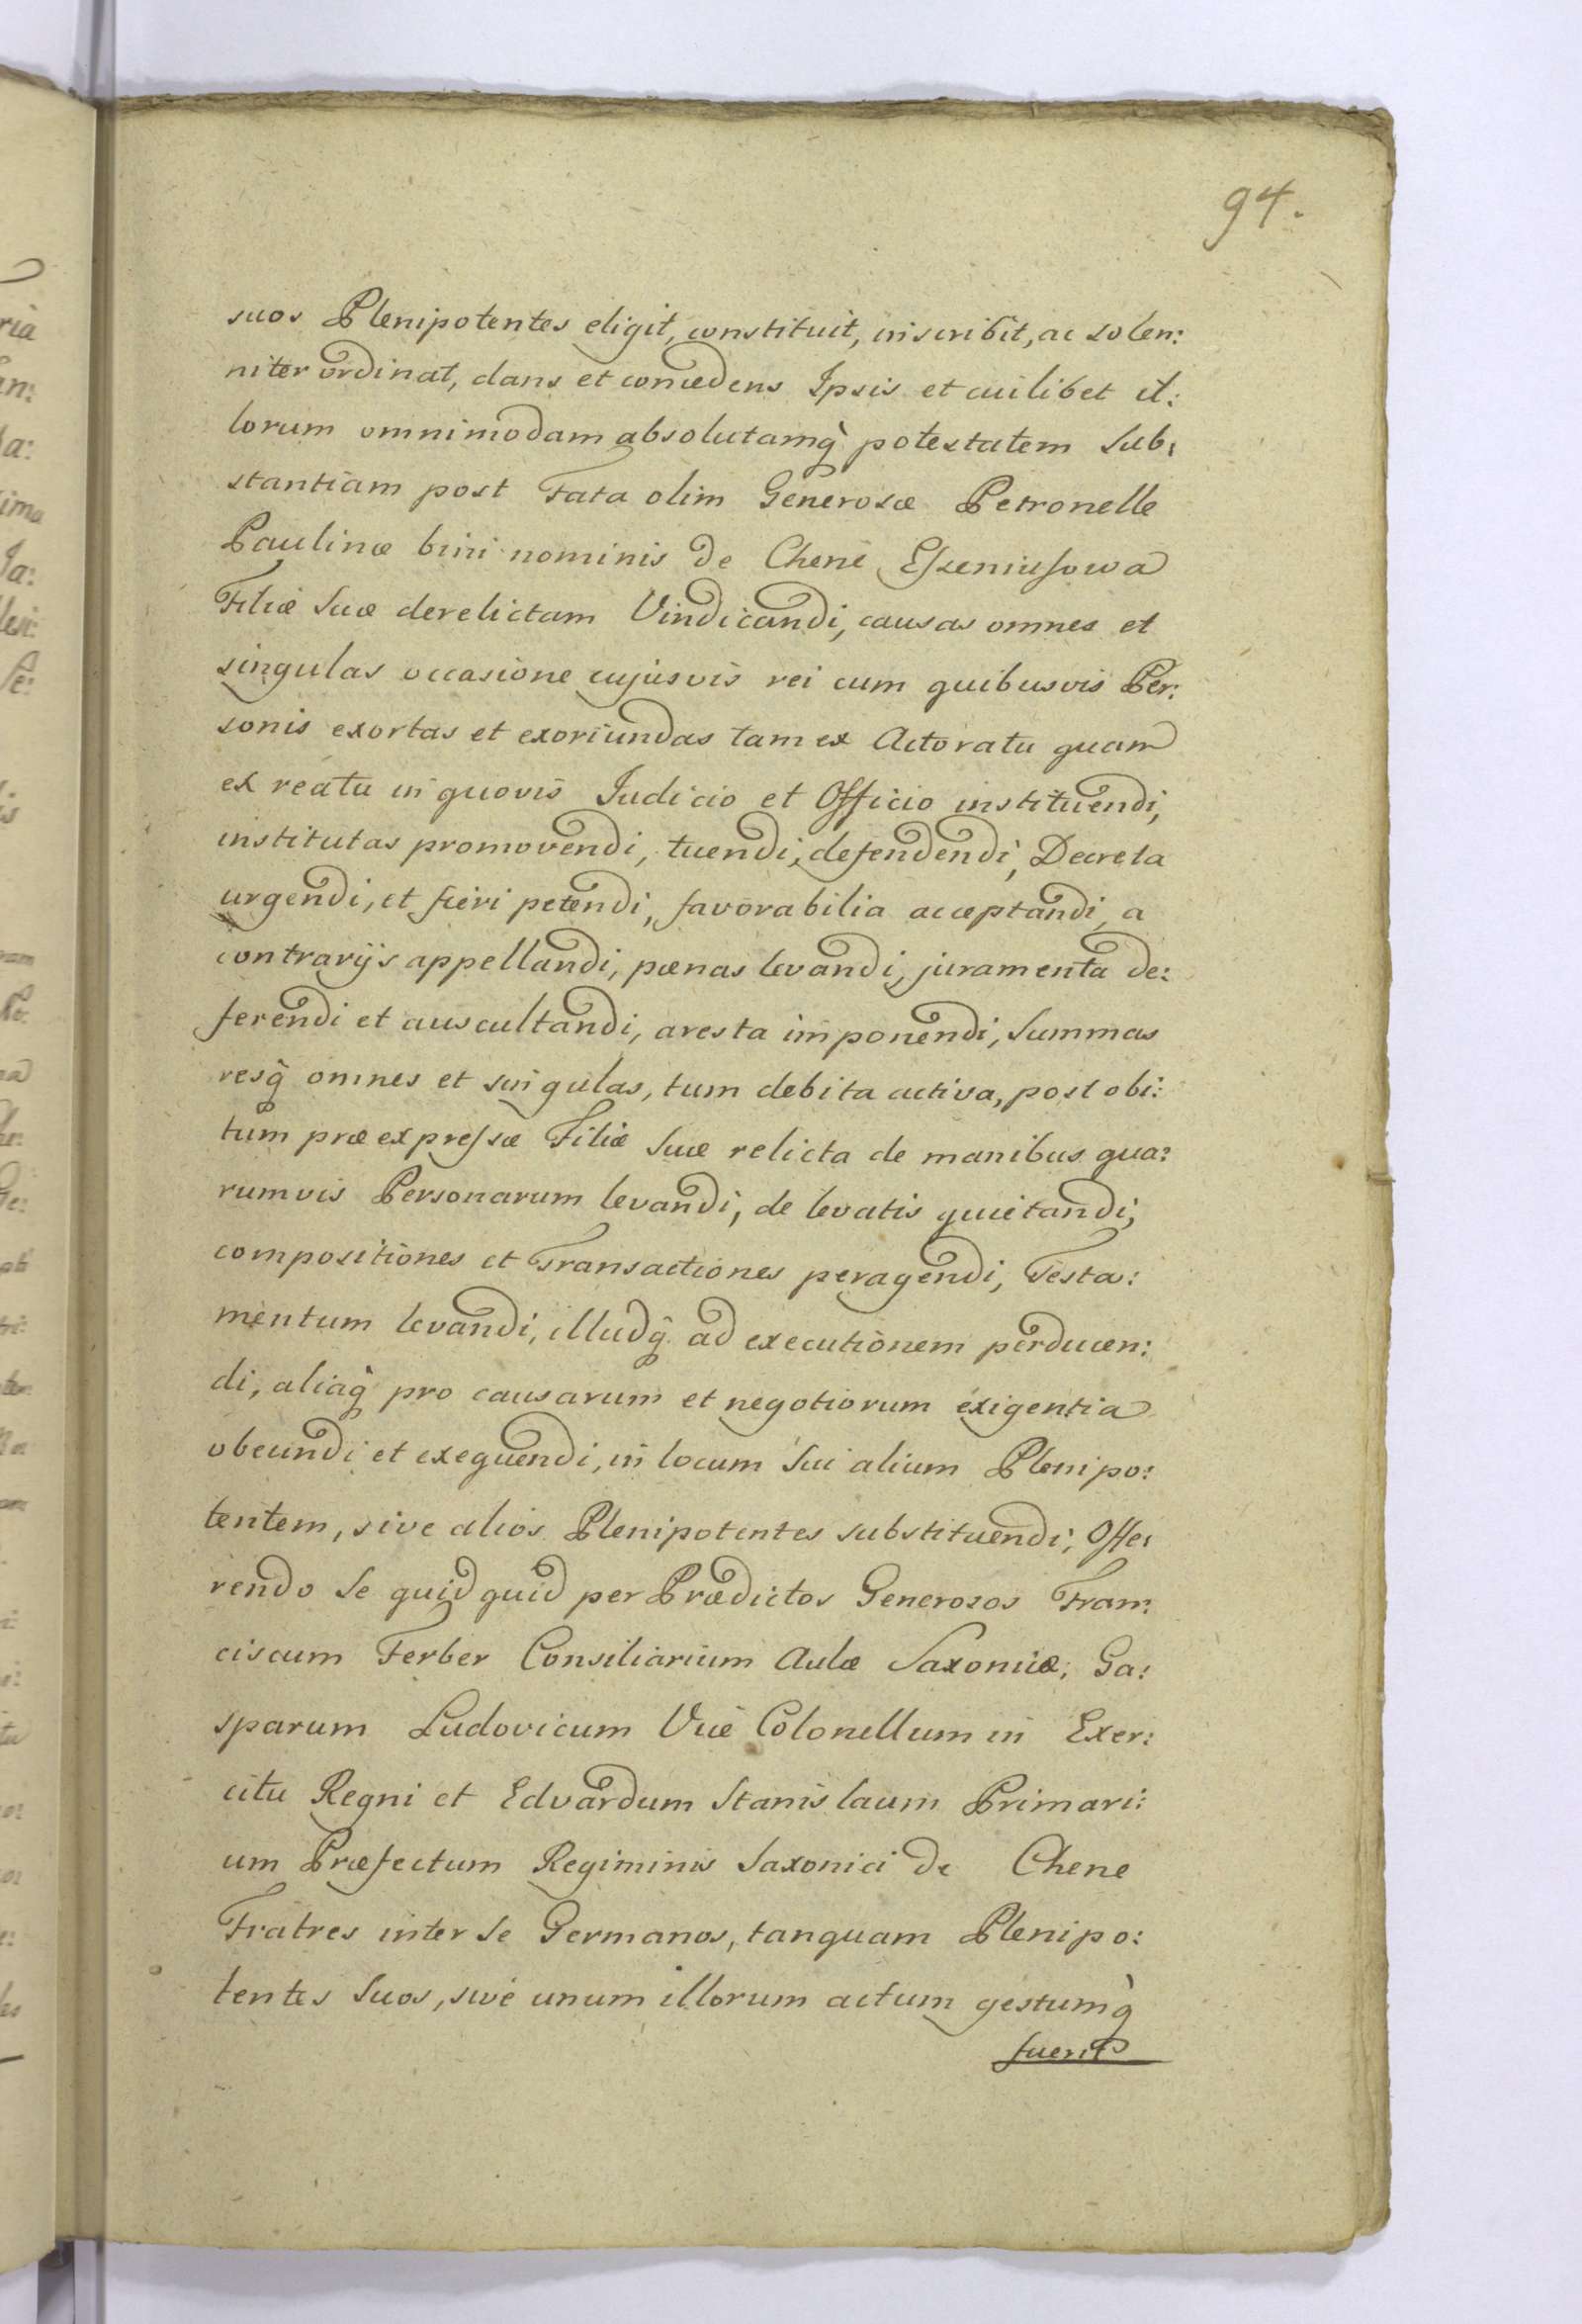 94.
suos Plenipotentes eligit, constituit, inscribit, ac solen:
niter ordinat, dans et concedens Ipsis et cuilibet il:
lorum omnimodam absolutamq̀ potestatem Sub:
stantiam post Fata olim Generosæ Petronelle
Paulinæ bini nominis de Chene
Filiæ Suæ derelictam Vindicandi, causas omnes et
singulas occasione cujusvis rei cum quibusvis Per:
sonis exortas et exoriundas tam ex Actoratu quam
ex reatu in quovis Judicio et Officio instituendi,
institutas promovendi, tuendi, defendendi, Decreta
urgendi, et fieri petendi, favorabilia acceptandi, a
contrarijs appellandi, pœnas levandi, juramenta de:
ferendi et auscultandi, aresta imponendi, Summas
resq̀ omnes et singulas, tum debita activa, post obi:
tum præexpressæ Filiæ Suæ relicta de manibus qua:
rumvis Personarum levandi, de levatis quietandi,
compositiones et Transactiones peragendi, Testa:
mentum levandi, illudq̀ ad executionem perducen:
di, aliaq̀ pro causarum et negotiorum exigentia
obeundi et exequendi, in locum Sui alium Plenipo:
tentem, sive alios Plenipotentes substituendi; Offe:
rendo Se quidquid per Prædictos Generosos Fran:
ciscum Ferber Consiliarium Aulæ Saxonicæ, Ga:
sparum Ludovicum Vice Colonellum in Exer:
citu Regni et Edvardum Stanislaum Primari:
um Præfectum Regiminis Saxonici de Chene
Fratres inter Se Germanos, tanquam Plenipo:
tentes Suos, sive unum illorum actum gestumq̀
fuerit